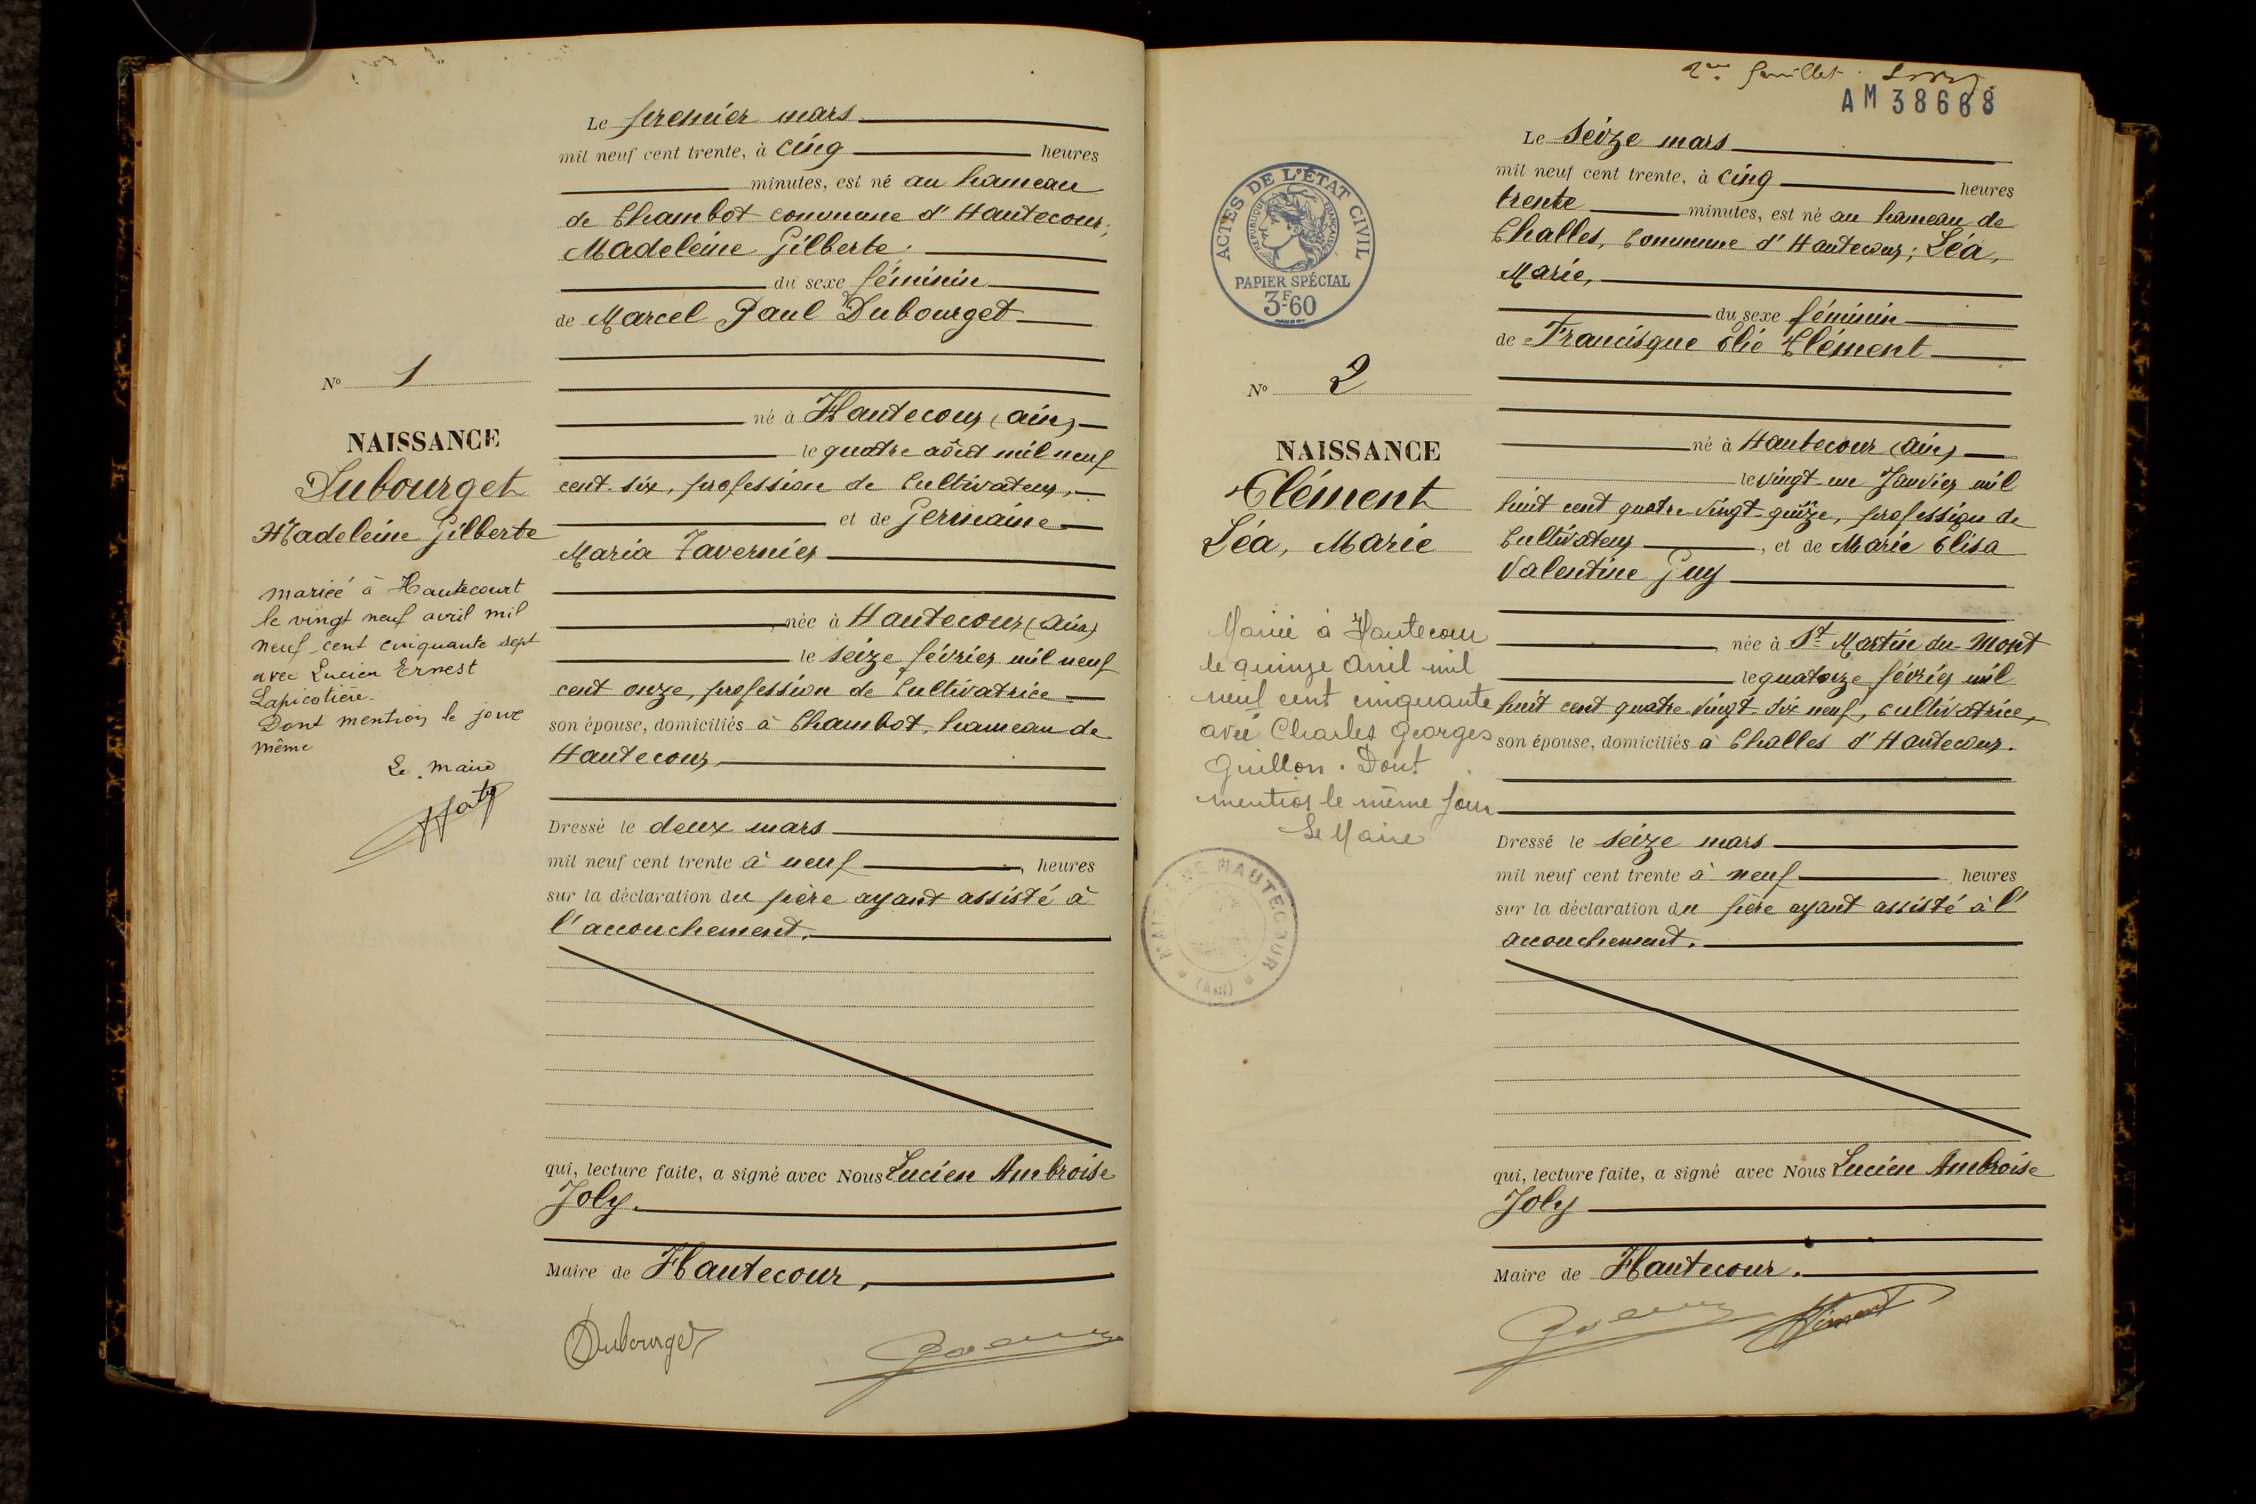 Le premier mars
mil neuf cent trente, à cinq heures
minutes, est né au hameau
de Chambot commune d'Hautecour;
Madeleine Gilberte.
du sexe féminin
de Marcel Paul Dubourget
né à Hautecour (Ain)
le quatre août mil neuf
cent six, profession de Cultivateur,
et de Germaine
Maria Tavernier
née à Hautecour (Ain)
le seize février mil neuf
cent onze, profession de Cultivatrice
son épouse, domiciliés à Chambot, hameau de
Hautecour
Dressé le deux mars
mil neuf cent trente à neuf, heures
sur la déclaration du père ayant assisté à
l'accouchement.
qui, lecture faite, a signé avec Nous Lucien Ambroise
Joly.
Maire de Hautecour,
Dubourget
No 1
NAISSANCE
Dubourget
Madeleine Gilberte
mariée à Hautecourt
le vingt neuf avril mil
neuf cent cinquante sept
avec Lucien Ernest
Lapicotière.
Dont mention le jour
même
Le Maire
2me feuillet.
AM 38668
Le Seize mars
mil neuf cent trente, à cinq heures
trente minutes, est né au hameau de
Challes, Commune d'Hautecour; Léa,
Marie,
du sexe féminin
de Francisque Elie Clément
né à Hautecour (Ain)
le vingt un Janvier mil
huit cent quatre vingt, profession de
Cultivateur, et de Marie Elisa
Valentine Guy
née à St Martin du Mont
le quatorze février mil
huit cent quatre vingt dix neuf, cultivatrice,
son épouse, domiciliés à Challes d'Hautecour.
Dressé le seize mars
mil neuf cent trente à neuf heures
sur la déclaration du père ayant assisté à l'
accouchement.
qui, lecture faite, a signé avec Nous Lucien Ambroise
Joly
Maire de Hautecour.
Clément
ACTES DE L'ÉTAT CIVIL
RÉPUBLIQUE FRANÇAISE
PAPIER SPÉCIAL
3F60
No 2
NAISSANCE
Clément
Léa, Marie
Mariée à Hautecour
le quinze Avril mil
neuf cent cinquante
avec Charles Georges
Guillon. Dont
mention le même jour
Le Maire
MAIRIE DE HAUTECOUR
(Ain)